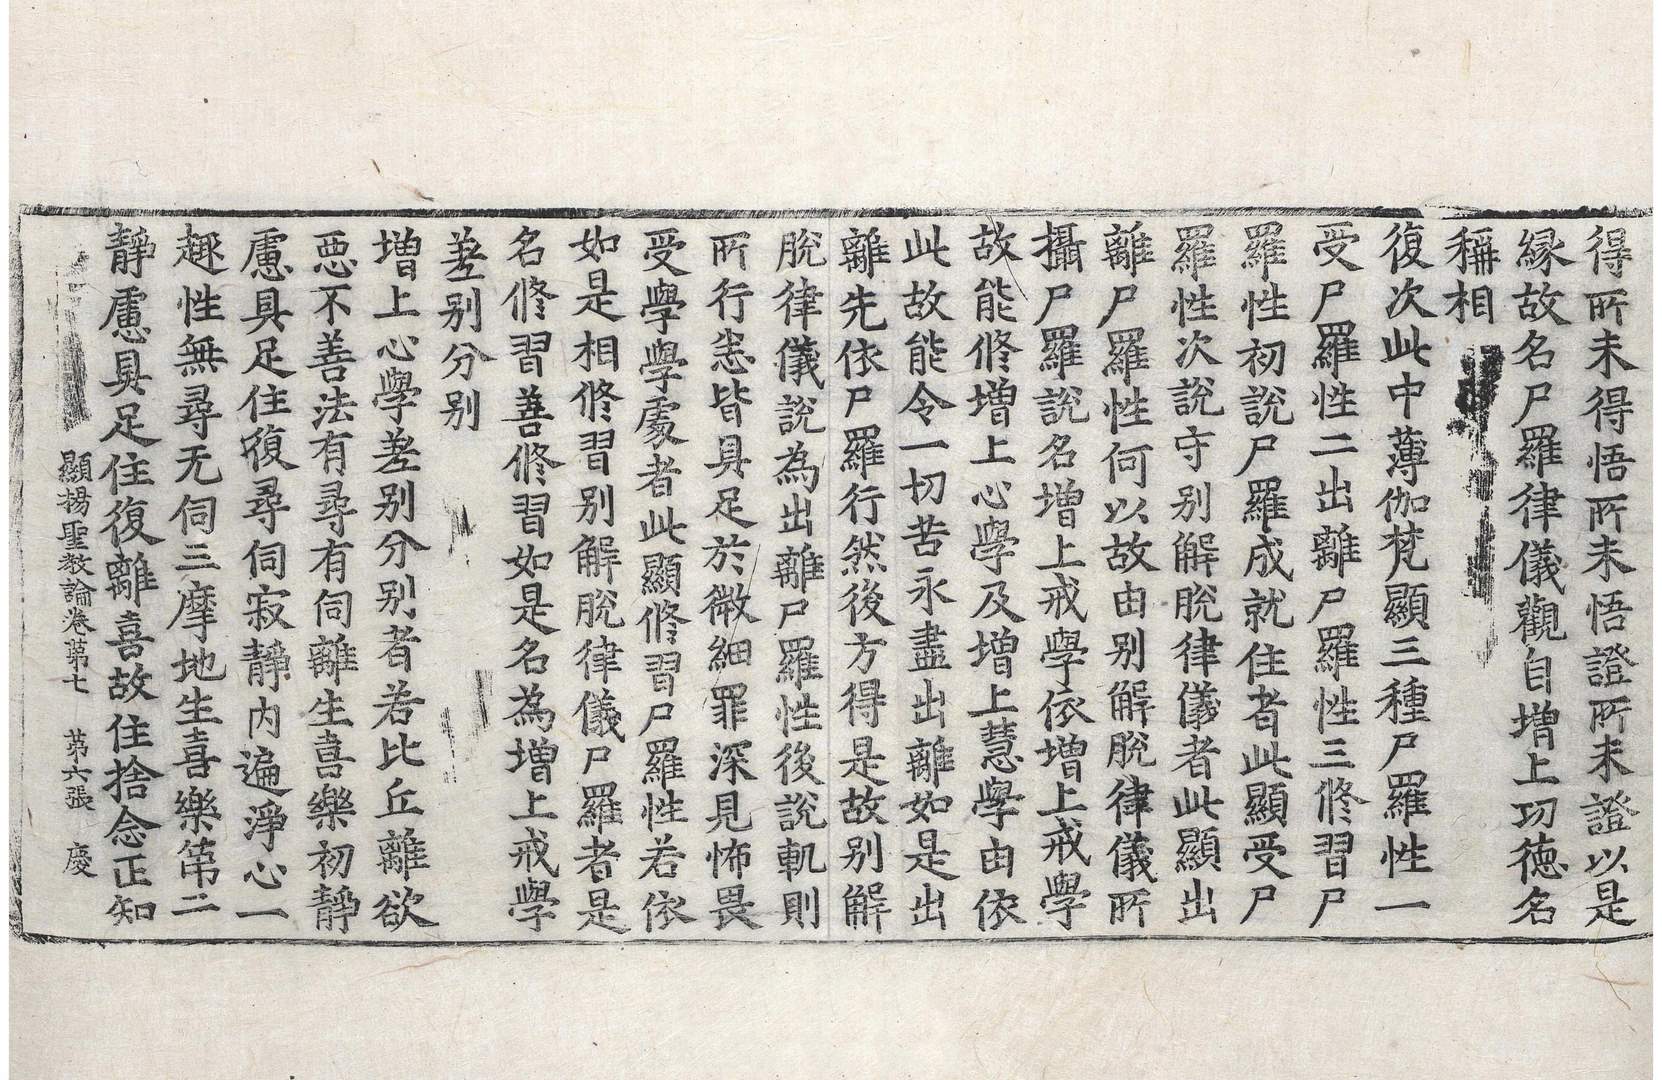 得所未得悟所未悟證所未證以是
縁故名尸羅律儀觀自增上功德名
稱相
復次此中薄伽梵顯三種尸羅性一
受尸羅性二出離尸羅性三修習尸
羅性初說尸羅成就住者此顯受尸
羅性次說守别解脫律儀者此顯出
離尸羅性何以故由别解脫律儀所
攝尸羅說名增上戒學依增上戒學
故能修增上心學及增上慧學由依
此故能令一切苦永盡出離如是出
離先依尸羅行然後方得是故别解
脫律儀說為出離尸羅性後說軌則
所行悉皆具足於微細罪深見怖畏
受學學處者此顯修習尸羅性若依
如是相修習别解脫律儀尸羅者是
名修習善修習如是名為增上戒學
差别分别
增上心學差别分别者若比丘離欲
惡不善法有尋有伺離生喜樂初靜
慮具足住復尋伺寂靜内遍淨心一
趣性無尋无伺三摩地生喜樂第二
靜慮具足住復離喜故住捨念正知
顯揚聖教論卷苐七　苐六張　慶